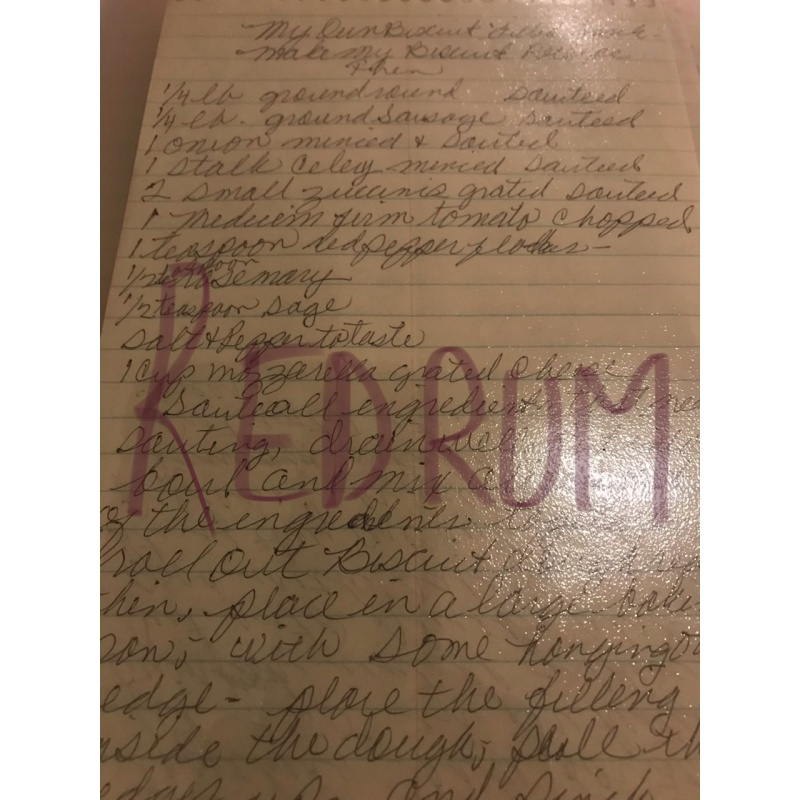 My Own Biscuit
Make My Biscuit Recipe
Then
1/4 lb ground round sauteed
1/4 lb. ground Sausage sauteed
1 onion minced & sauted
1 stalk Celey minced sauteed
2 small zuccinis grated sauteed
1 medium firm tomato chopped
1 teaspoon red pepper flakes -
1/2 teaspoon Rosemary
1/2 teaspoon sage
Salt & Pepper to taste
1 cup mozzarella grated cheese
Saute all ingredients
sauting, drain well
bowl and mix
of the ingredients
roll out Biscuit dough
then, place in a large
with some hanging
edge - place the filling
inside the dough; pull th
edges up and pinch
REDRUM